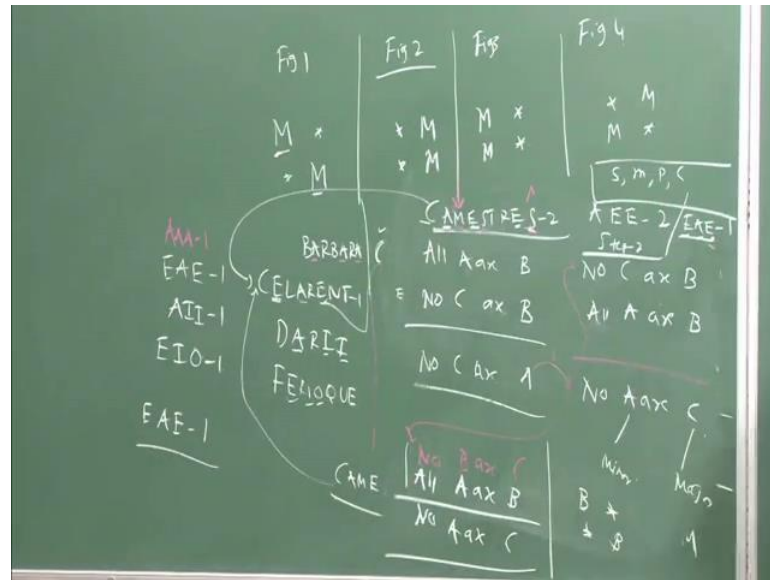 Fig 1
Fig 2
Fig 3
Fig 4
M *
* M
* M
* M
M *
M *
* M
M *
S, M, P, C
AAA-1
EAE-1
AII-1
EIO-1
EAE-1
BARBARA
CELARENT-1
DARII
FERIOQUE
CAMESTRES-2
All A ax B
E No C ax B
No C ax A
CAME
No B ax C
All A ax B
No A ax C
AEE-2
EAE-1
Step-2
No C ax B
All A ax B
No A ax C
Minor
Major
B *
* B